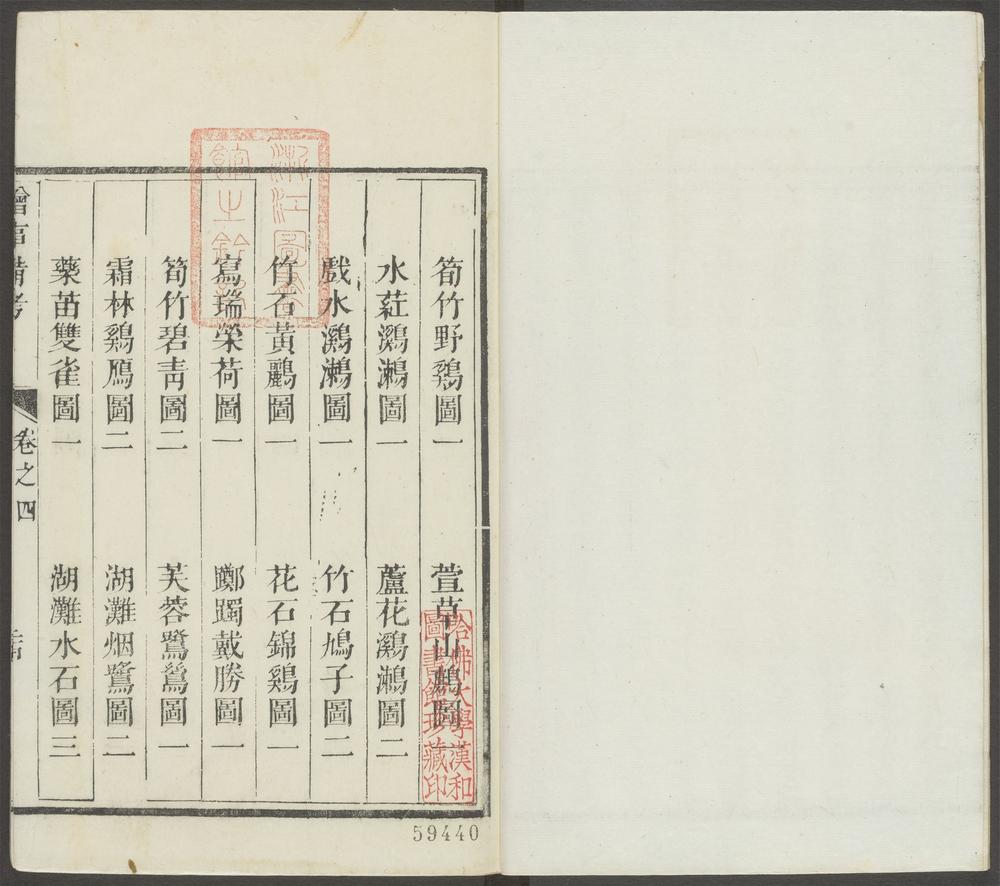 筍竹野鷄圖一
萱草山鷓圖
水葒鸂鶒圖一
蘆花鸂鶒圖二
戲水鸂鶒圖一
竹石鳩子圖二
竹石黃鸝圖一
花石錦鷄圖一
寫瑞榮荷圖一
躑躅戴勝圖一
筍竹碧靑圖二
芙蓉鷺鷥圖一
霜林鷄鴈圖二
湖灘烟鷺圖二
藥苗雙雀圖一
湖灘水石圖三
卷之四
浙江圖書
館之鈐記
哈佛大學漢和
圖書館珍藏印
59440